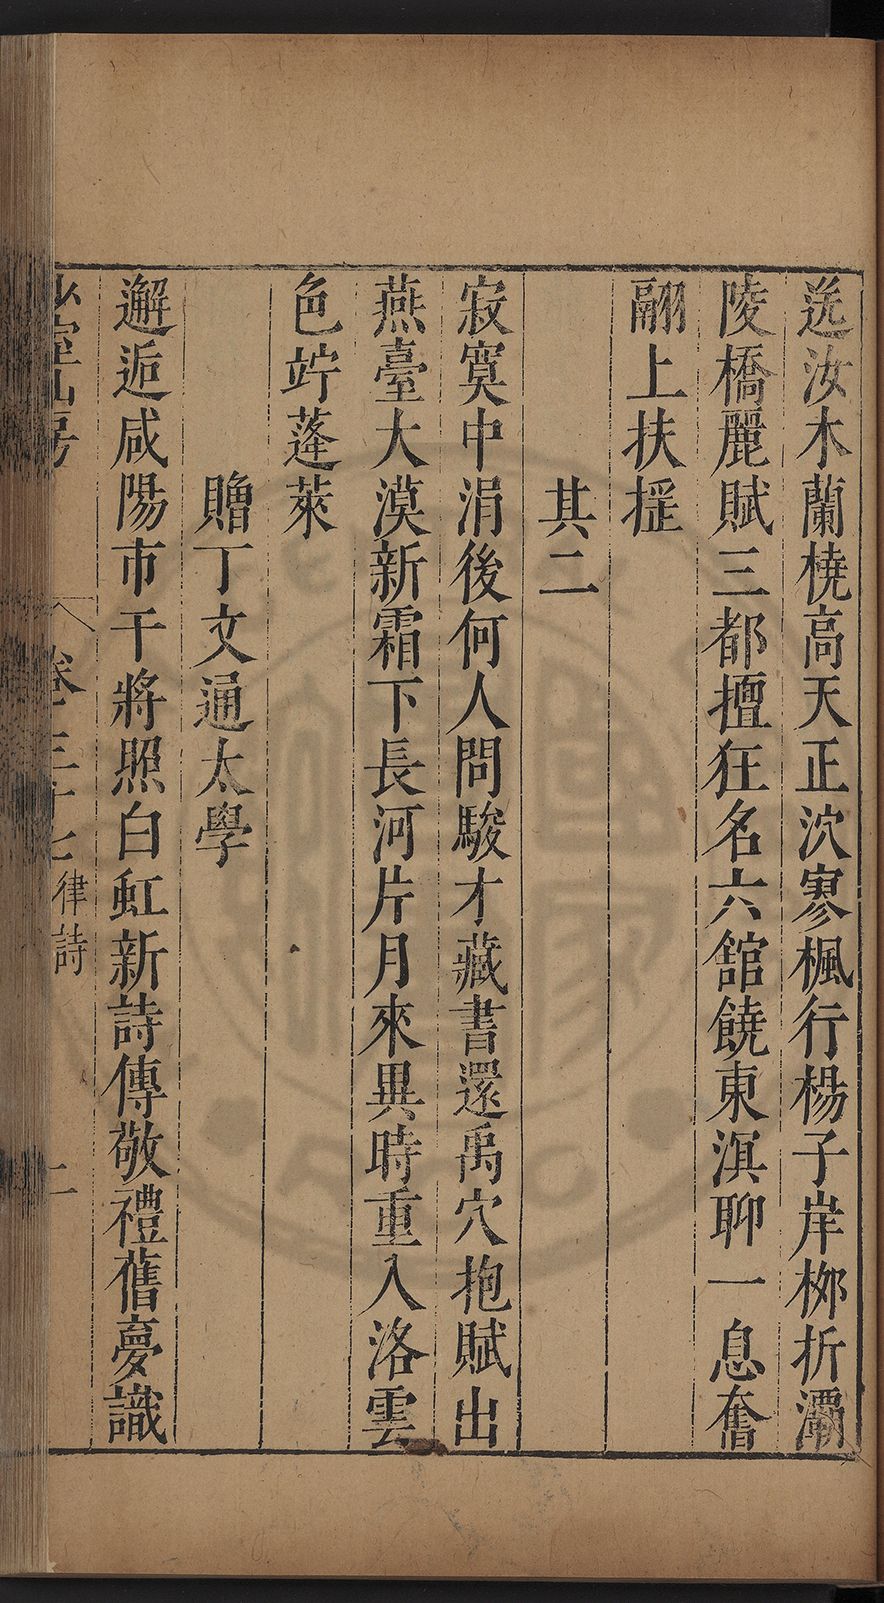 送汝木蘭橈高天正泬寥楓行楊子岸栁折灞
陵橋麗賦三都擅狂名六舘饒東溟聊一息奮
翮上扶揺
其二
寂寞中涓後何人問駿才藏書還禹穴抱賦出
燕臺大漠新霜下長河片月來異時重入洛雲
色竚蓬萊
贈丁文通太學
邂逅咸陽市干將照白虹新詩傳敬禮舊夢識
少室山房
卷三十七
律詩
二